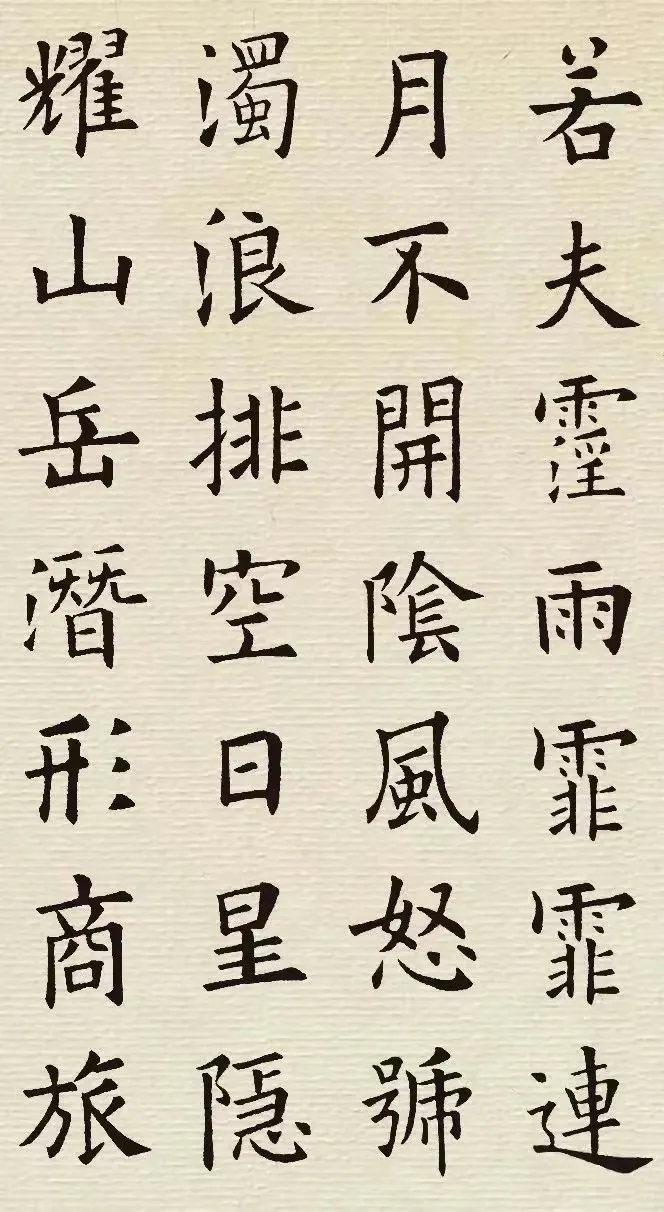 若夫霪雨霏霏連
月不開陰風怒號
濁浪排空日星隐
耀山岳潛形商旅